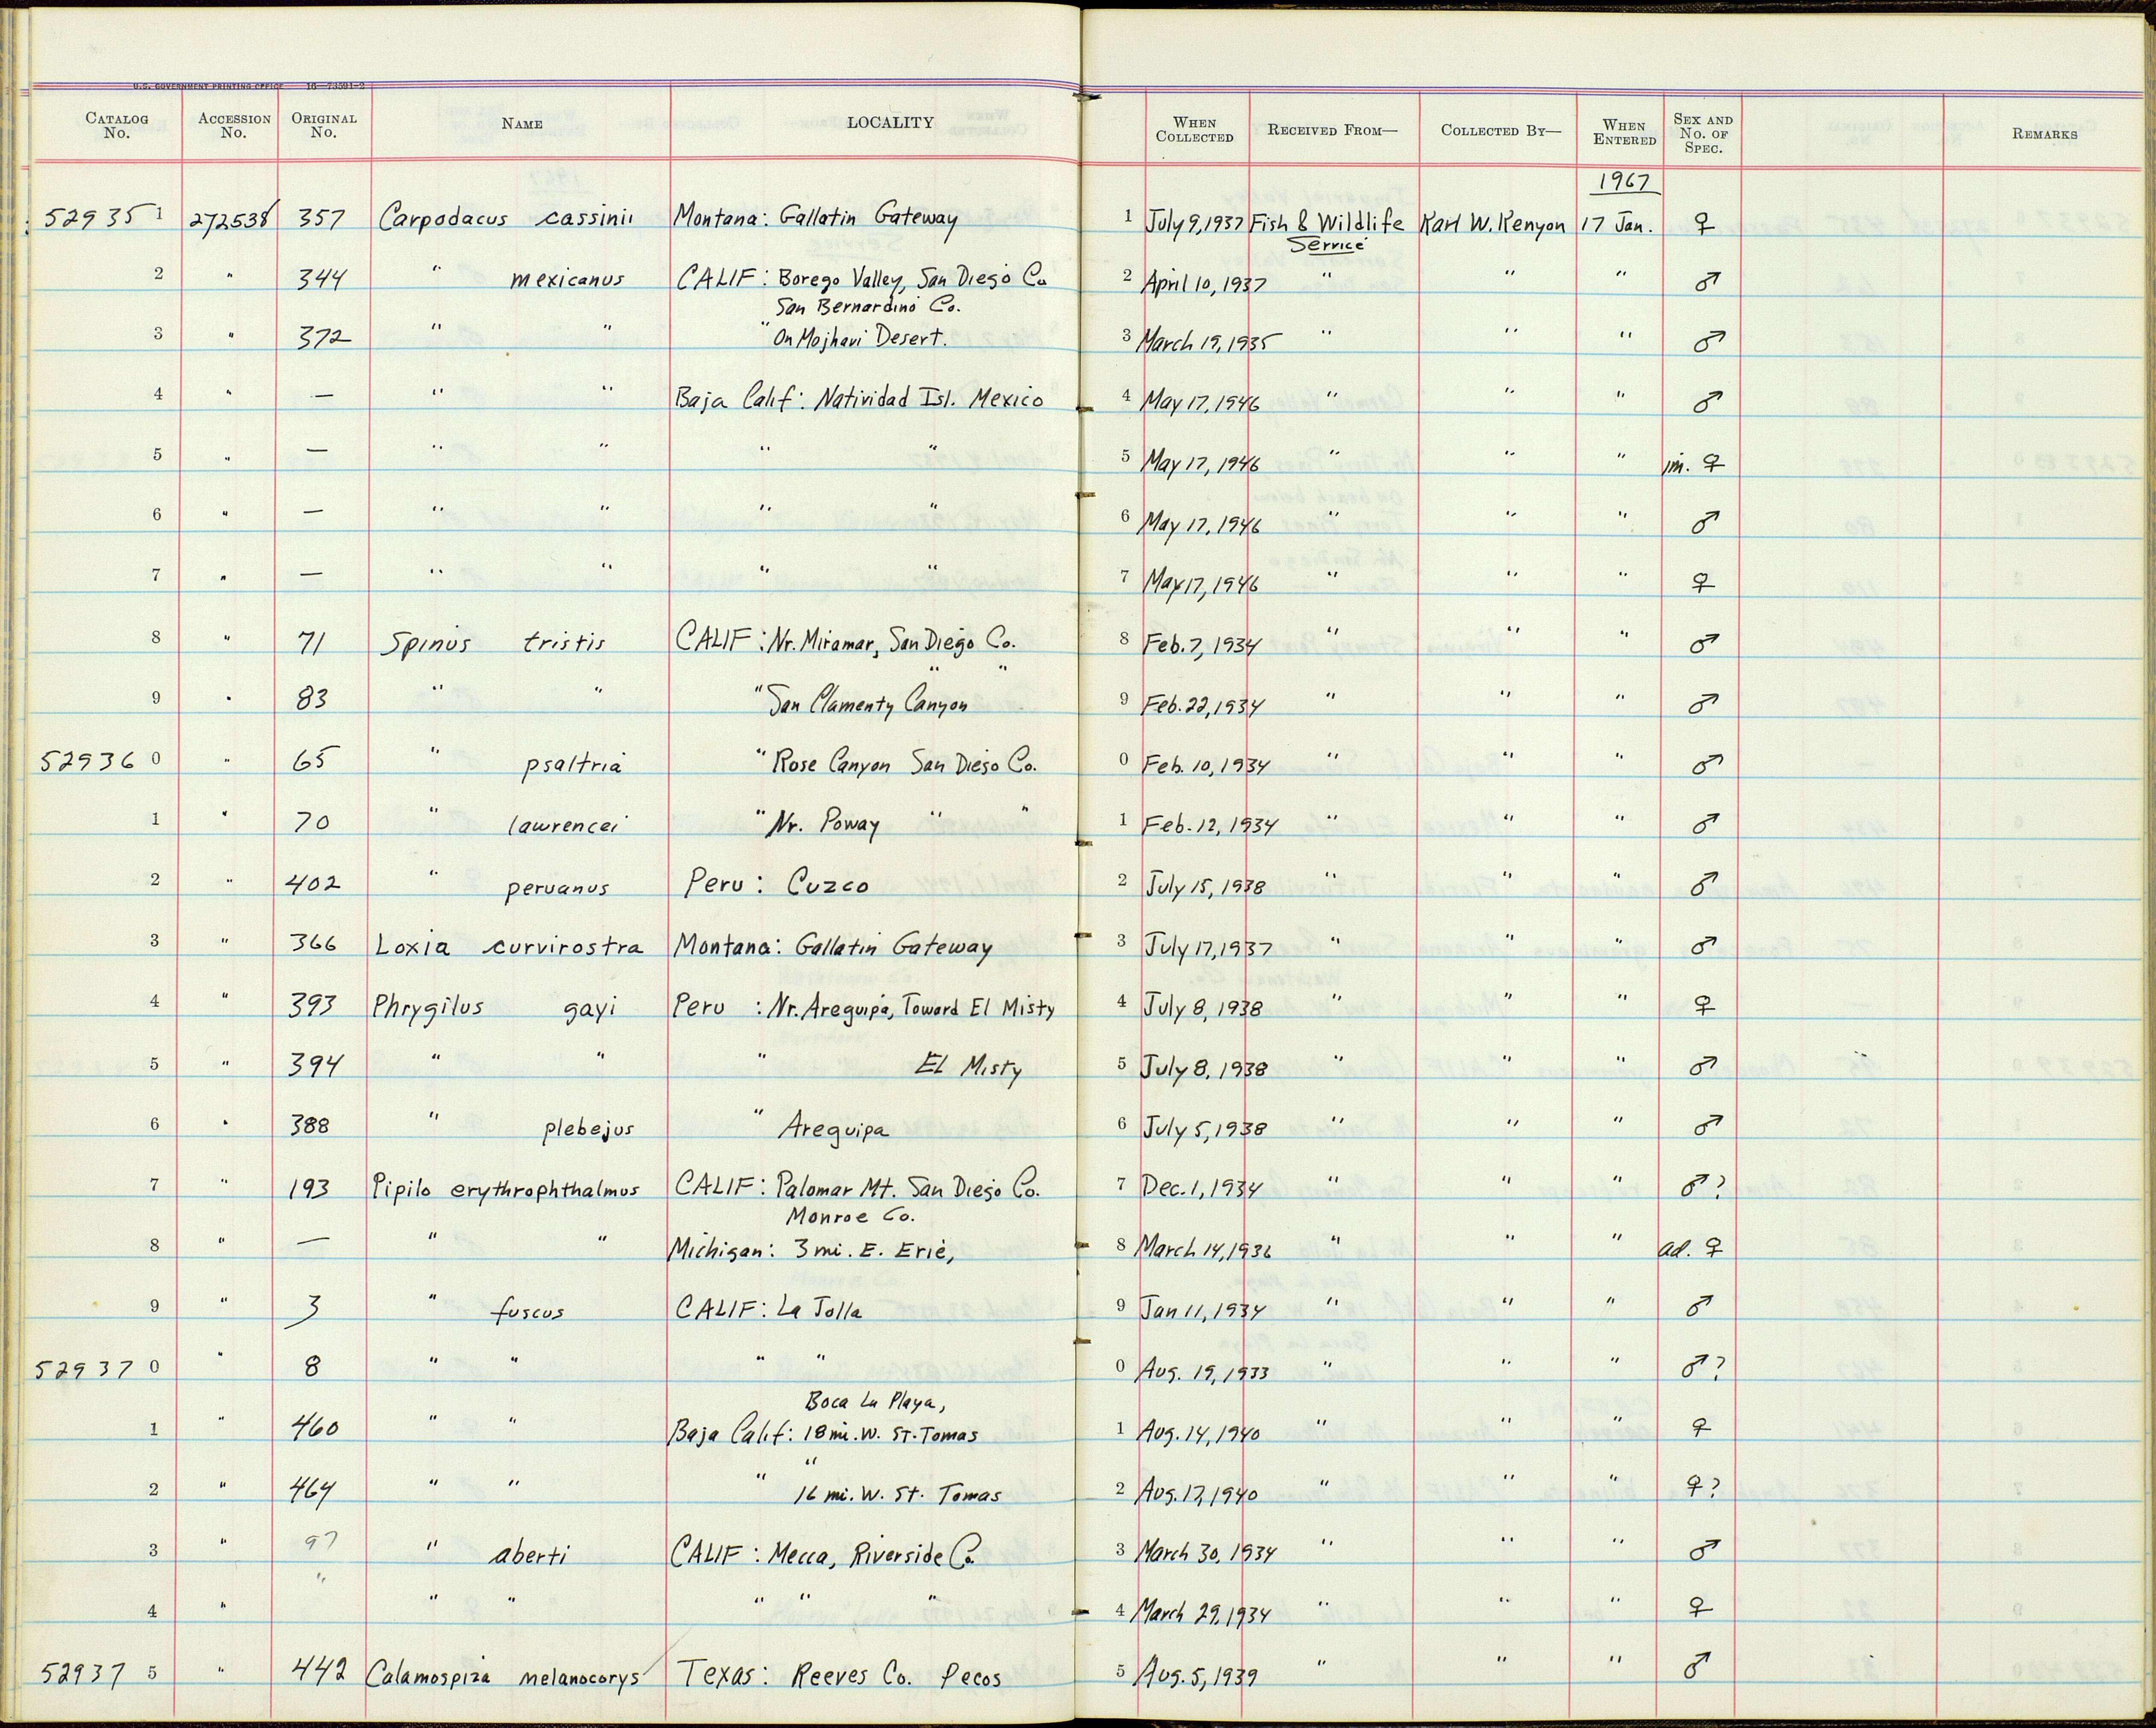 U.S. GOVERNMENT PRINTING OFFICE 16—73591-2
CATALOG No. ACCESSION No. ORIGINAL No. NAME LOCALITY WHEN COLLECTED RECEIVED FROM— COLLECTED BY— WHEN ENTERED SEX AND No. OF SPEC. REMARKS
1967
52935 1 272538 357 Carpodacus cassinii Montana: Gallatin Gateway 1 July 9, 1937 Fish & Wildlife Karl W. Kenyon 17 Jan. ♀
Service
2 " 344 " mexicanus CALIF: Borego Valley, San Diego Co 2 April 10, 1937 " " " ♂
San Bernardino Co.
3 " 372 " " " On Mojhavi Desert. 3 March 19, 1935 " " " ♂
4 " — " " Baja Calif: Natividad Isl. Mexico 4 May 17, 1946 " " " ♂
5 " — " " " " 5 May 17, 1946 " " " im. ♀
6 " — " " " " 6 May 17, 1946 " " " ♂
7 " — " " " " 7 May 17, 1946 " " " ♀
8 " 71 Spinus tristis CALIF: Nr. Miramar, San Diego Co. 8 Feb. 7, 1934 " " " ♂
" "
9 " 83 " " " San Clamenty Canyon 9 Feb. 22, 1934 " " " ♂
52936 0 " 65 " psaltria " Rose Canyon San Diego Co. 0 Feb. 10, 1934 " " " ♂
1 " 70 " lawrencei " Nr. Poway " " 1 Feb. 12, 1934 " " " ♂
2 " 402 " peruanus Peru: Cuzco 2 July 15, 1938 " " " ♂
3 " 366 Loxia curvirostra Montana: Gallatin Gateway 3 July 17, 1937 " " " ♂
4 " 393 Phrygilus gayi Peru : Nr. Arequipa, Toward El Misty 4 July 8, 1938 " " " ♀
5 " 394 " " " El Misty 5 July 8, 1938 " " " ♂
6 " 388 " plebejus " Arequipa 6 July 5, 1938 " " " ♂
7 " 193 Pipilo erythrophthalmus CALIF: Palomar Mt. San Diego Co. 7 Dec. 1, 1934 " " " ♂?
Monroe Co.
8 " — " " Michigan: 3 mi. E. Erie, 8 March 14, 1936 " " " ad. ♀
9 " 3 " fuscus CALIF: La Jolla 9 Jan 11, 1934 " " " ♂
52937 0 " 8 " " " " 0 Aug. 19, 1933 " " " ♂?
Boca La Playa,
1 " 460 " " Baja Calif: 18 mi. W. St. Tomas 1 Aug. 14, 1940 " " " ♀
"
2 " 464 " " " 16 mi. W. St. Tomas 2 Aug. 17, 1940 " " " ♀?
3 " 97 " aberti CALIF: Mecca, Riverside Co. 3 March 30, 1934 " " " ♂
4 " " " " " " " 4 March 29, 1934 " " " ♀
52937 5 " 442 Calamospiza melanocorys Texas: Reeves Co. Pecos 5 Aug. 5, 1939 " " " ♂